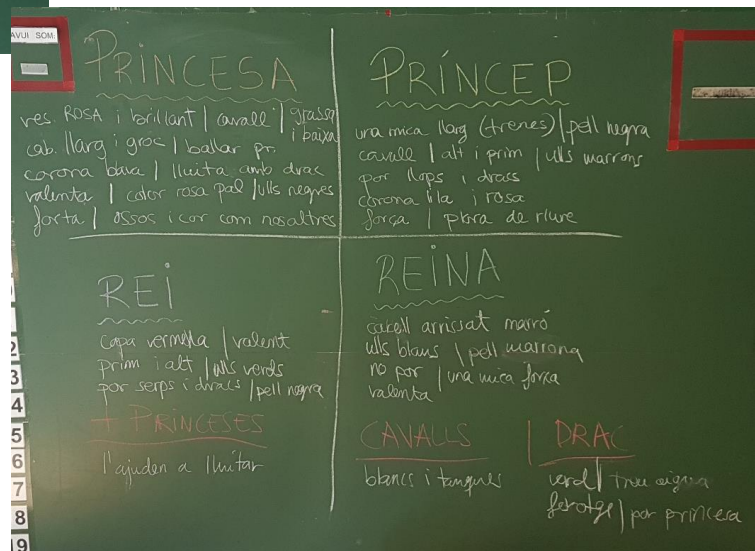 AVUI SOM:
PRINCESA
ves. ROSA i brillant | cavall | grassa
i baixa
cab. llarg i groc | ballar pr.
corona bava | lluita amb drac
valenta | color rosa pal | ulls negres
forta | ossos i cor com nosaltres
PRÍNCEP
una mica llarg (trenes) | pell negra
cavall | alt i prim | ulls marrons
por llops i dracs
corona lila i rosa
força | plora de riure
REI
capa vermella | valent
prim i alt | ulls verds
por serps i dracs | pell negra
+ PRINCESES
l'ajuden a lluitar
REINA
cabell arrissat marró
ulls blaus | pell marrona
no por | una mica força
valenta
CAVALLS
blancs i tanques
DRAC
verd | treu aigua
ferotge | por princesa
2
3
4
5
6
7
8
19